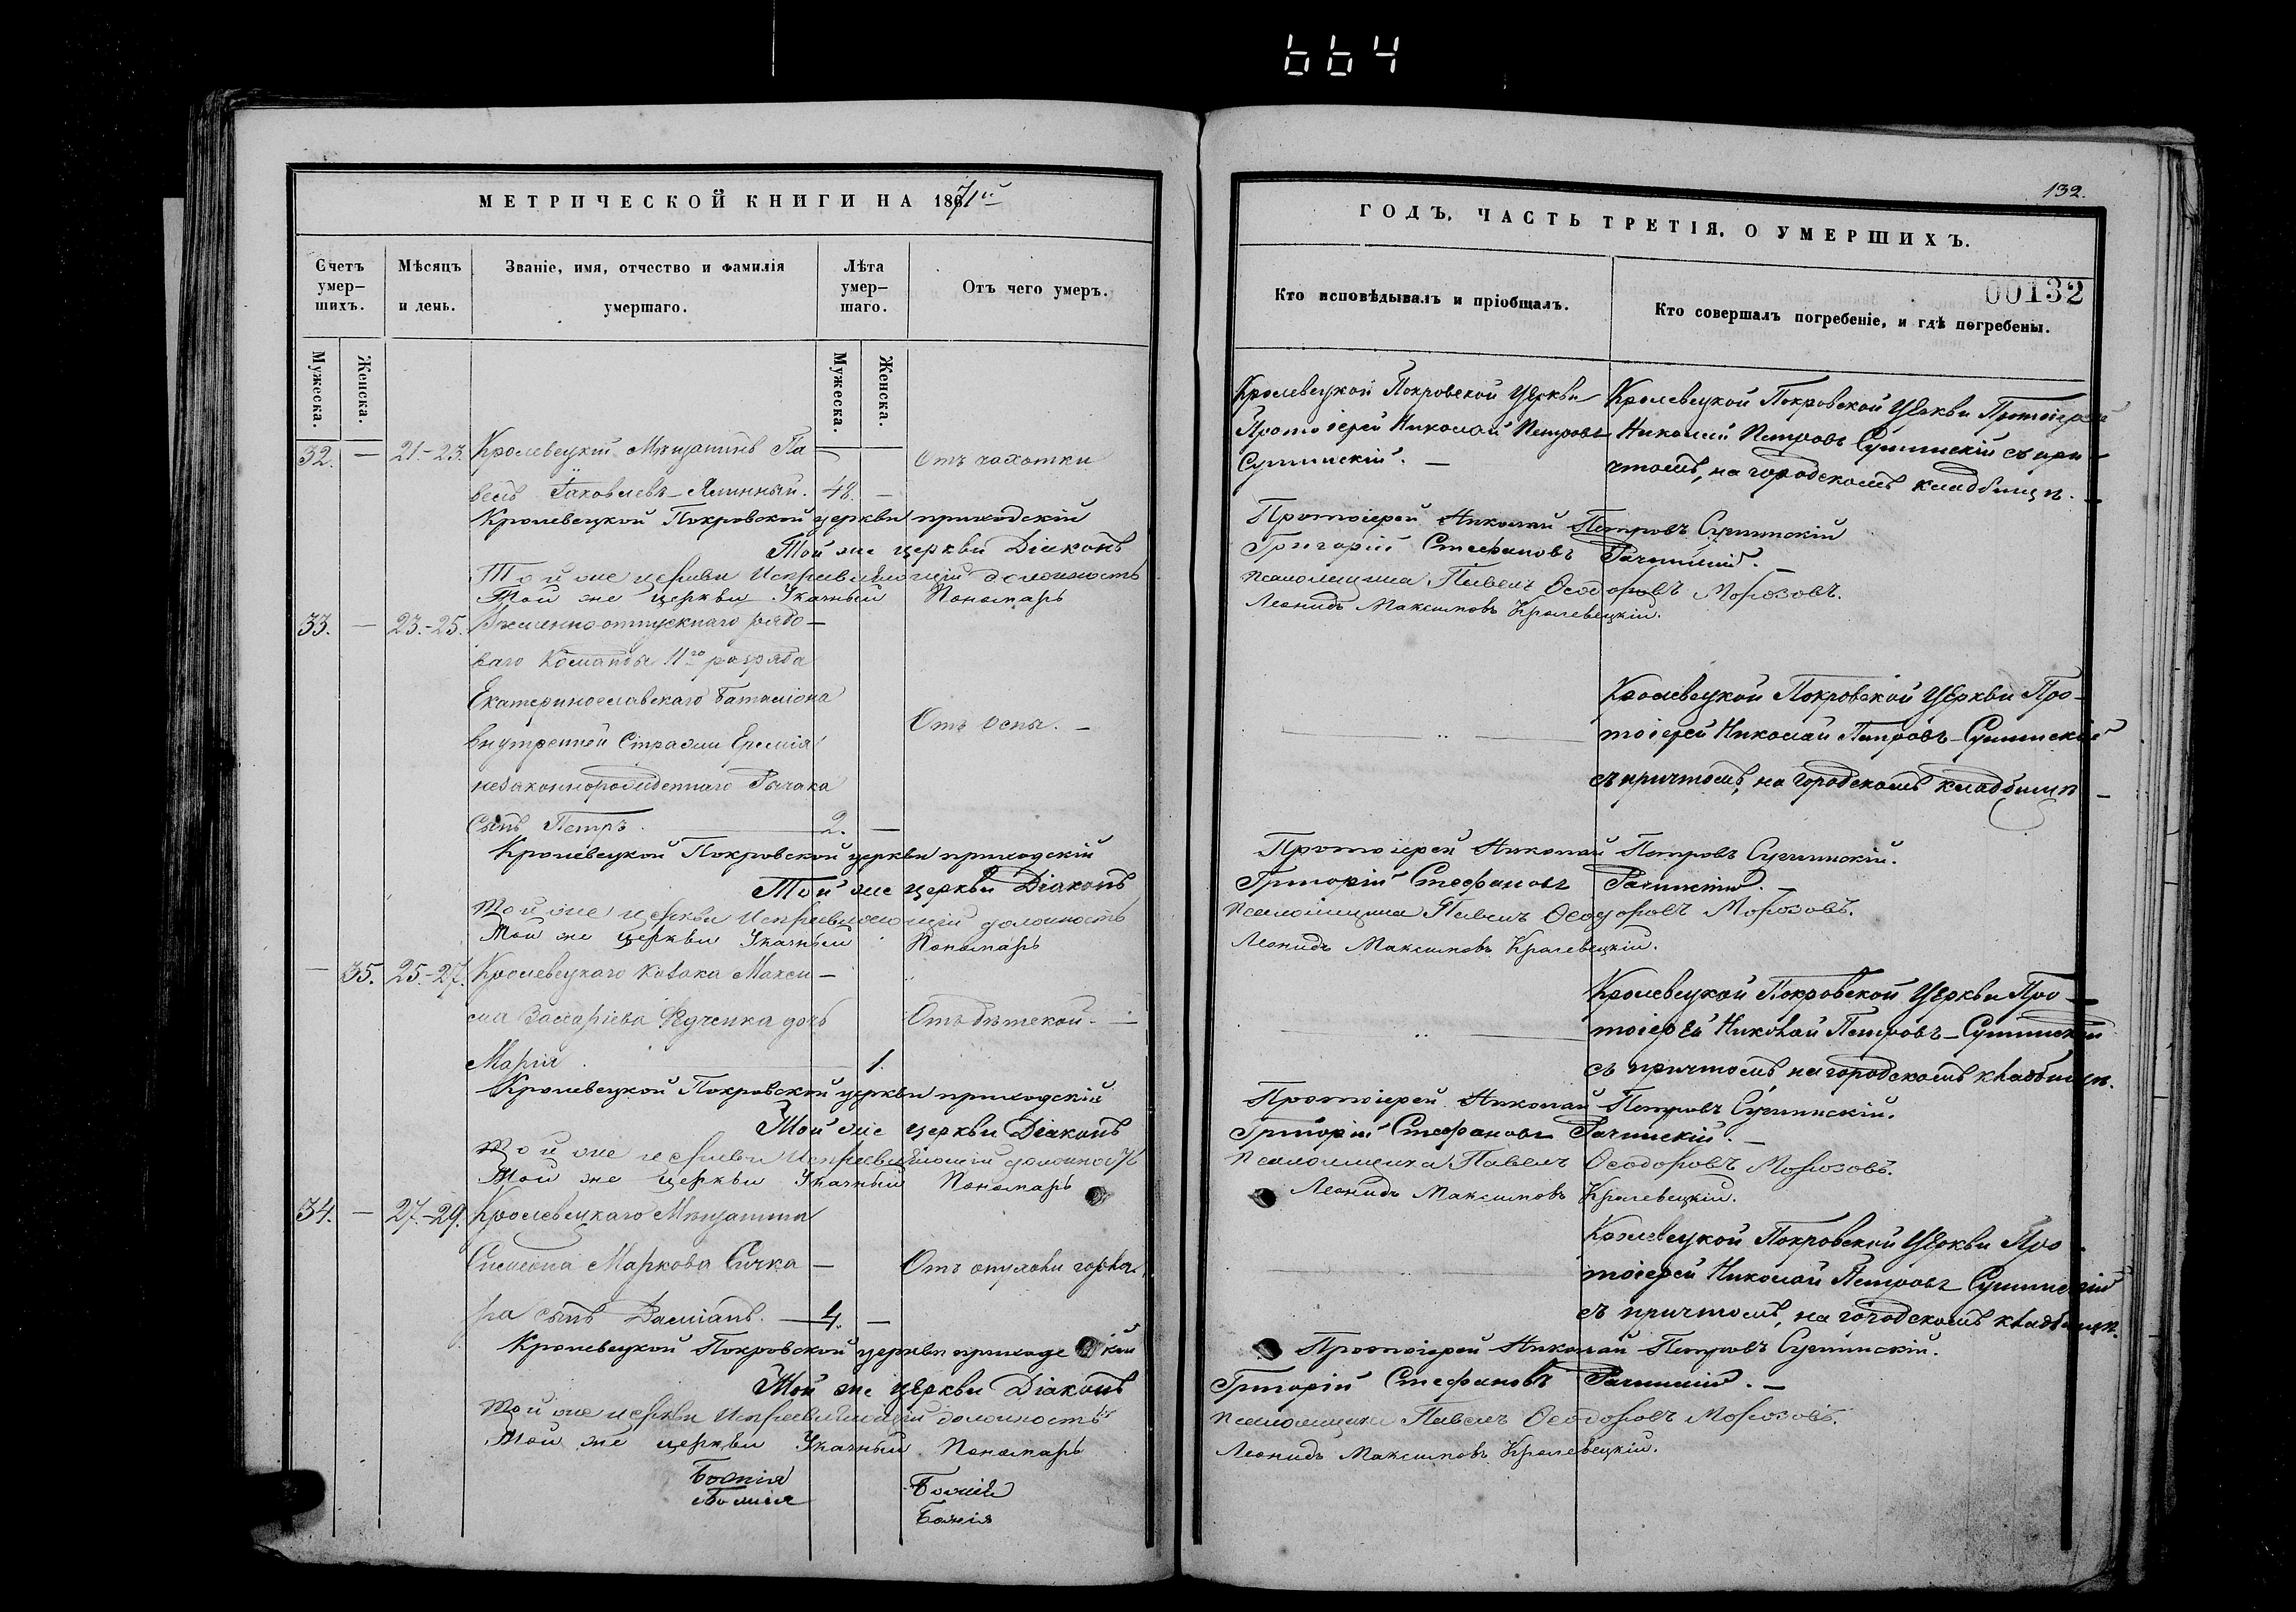 664
МЕТРИЧЕСКОЙ КНИГИ НА 1871й
Счетъ умер-шихъ.
Мѣсяцъ и день.
Званіе, имя, отчество и фамилія умершаго.
Лѣта умер-шаго.
Отъ чего умеръ.
Мужеска.
Женска.
Мужеска.
Женска.
32. — 21.-23. Кролевецкій Мѣщанинъ Па
велъ Яковлевъ 48. — Отъ чахотки
Кролевецкой Покровской церкви приходскій
Той же церкви Діаконъ
Той же церкви Исправляющій должность
Той же церкви Указный Пономарь
33. — 23.-25. Временно-отпускнаго рядо-
ваго Команды 11го разряда
Екатеринославскаго Баталіона
внутренней Стражи Еремія
незаконнорожденнаго Отъ оспы. —
сынъ Петръ. 2. —
Кролевецкой Покровской церкви приходскій
Той же церкви Діаконъ
Той же церкви Исправляющій должность
Той же церкви Указный Пономарь
— 35. 25.-27. Кролевецкаго Козака Макси-
ма Федченка дочь Отъ дѣтской. —
Марія 1.
Кролевецкой Покровской церкви приходскій
Той же церкви Діаконъ
Той же церкви Исправляющій должность
Той же церкви Указный Пономарь
34. — 27.-29. Кролевецкаго Мѣщанина
Симеона Маркова Сичка- Отъ опухоли горла.
ра сынъ Даміанъ. 4. —
Кролевецкой Покровской церкви приходскій
Той же церкви Діаконъ
Той же церкви Исправляющій должность
Той же церкви Указный Пономарь
132.
ГОДЪ, ЧАСТЬ ТРЕТІЯ, О УМЕРШИХЪ.
00132
Кто исповѣдывалъ и пріобщалъ.
Кто совершалъ погребеніе, и гдѣ погребены.
Кролевецкой Покровской Церкви
Протоіерей Николай Петровъ
Сушинскій. —
Кролевецкой Покровской Церкви Протоіерей
Николай Петровъ Сушинскій съ при
чтомъ, на городскомъ кладбищѣ. —
Протоіерей Николай Петровъ Сушинскій
Григорій Стефановъ Рачинскій.
псаломщика Павелъ Ѳеодоровъ Морозовъ.
Леонидъ Максимовъ Кролевецкій.
Кролевецкой Покровской Церкви Про-
тоіерей Николай Петровъ Сушинскій
съ причтомъ, на городскомъ кладбищѣ —
Протоіерей Николай Петровъ Сушинскій.
Григорій Стефановъ Рачинскій. —
псаломщика Павелъ Ѳеодоровъ Морозовъ.
Леонидъ Максимовъ Кролевецкій.
Кролевецкой Покровской Церкви Про-
тоіерей Николай Петровъ Сушинскій
съ причтомъ на городскомъ кладбищѣ.
Протоіерей Николай Петровъ Сушинскій.
Григорій Стефановъ Рачинскій. —
псаломщика Павелъ Ѳеодоровъ Морозовъ.
Леонидъ Максимовъ Кролевецкій.
Кролевецкой Покровской Церкви Про-
тоіерей Николай Петровъ Сушинскій
съ причтомъ, на городскомъ кладбищѣ.
Протоіерей Николай Петровъ Сушинскій.
Григорій Стефановъ Рачинскій. —
псаломщика Павелъ Ѳеодоровъ Морозовъ.
Леонидъ Максимовъ Кролевецкій.